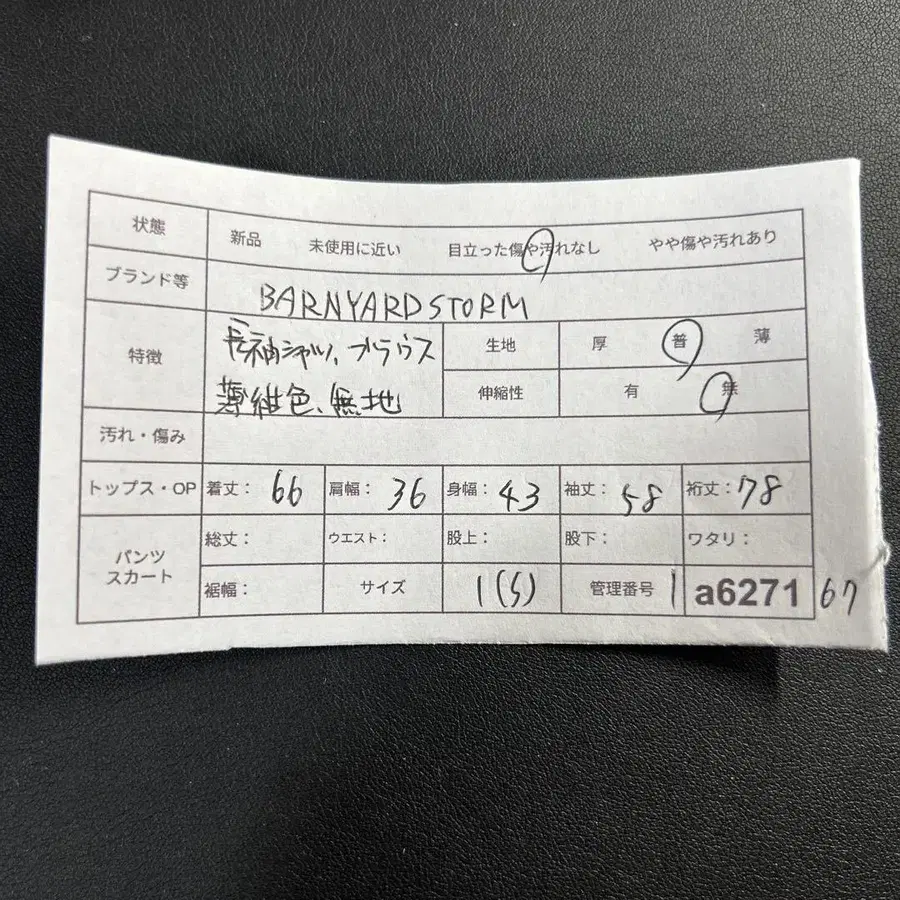 状態 新品 未使用に近い 目立った傷や汚れなし やや傷や汚れあり
ブランド等 BARNYARDSTORM
特徴 長袖シャツ、ブラウス 生地 厚 普 薄
薄紺色、無地 伸縮性 有 無
汚れ・傷み
トップス・OP 着丈: 66 肩幅: 36 身幅: 43 袖丈: 58 裄丈: 78
パンツ スカート 総丈: ウエスト: 股上: 股下: ワタリ:
裾幅: サイズ 1(S) 管理番号 1 a6271 67